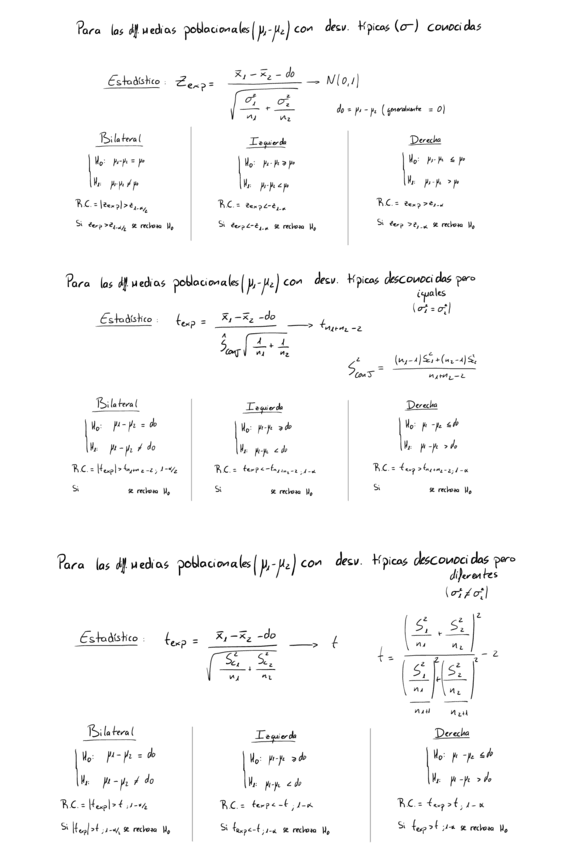 Para las diff. Medias poblacionales (μ₁-μ₂) con desv. típicas (σ) conocidas
Estadístico: Zexp = (x̄₁ - x̄₂ - do) / √(σ₁²/n₁ + σ₂²/n₂) → N(0,1)
do = μ₁ - μ₂ (generalmente = 0)
Bilateral
H₀: μ₁-μ₂ = μ₀
H₁: μ₁-μ₂ ≠ μ₀
R.C. = |zexp| > z₁₋α/₂
Si zexp > z₁₋α/₂ se rechaza H₀
Izquierdo
H₀: μ₁-μ₂ ≥ μ₀
H₁: μ₁-μ₂ < μ₀
R.C. = zexp < -z₁₋α
Si zexp < -z₁₋α se rechaza H₀
Derecha
H₀: μ₁-μ₂ ≤ μ₀
H₁: μ₁-μ₂ > μ₀
R.C. = zexp > z₁₋α
Si zexp > z₁₋α se rechaza H₀
Para las diff. Medias poblacionales (μ₁-μ₂) con desv. típicas desconocidas pero
iguales
(σ₁² = σ₂²)
Estadístico: texp = (x̄₁ - x̄₂ - do) / (Ŝconj √(1/n₁ + 1/n₂)) → t n₁+n₂-2
S²conj = ((n₁-1)S²c₁ + (n₂-1)S²c₂) / (n₁+n₂-2)
Bilateral
H₀: μ₁ - μ₂ = do
H₁: μ₁ - μ₂ ≠ do
R.C. = |texp| > t n₁+n₂-2, 1-α/2
Si se rechaza H₀
Izquierdo
H₀: μ₁-μ₂ ≥ do
H₁: μ₁-μ₂ < do
R.C. = texp < -t n₁+n₂-2, 1-α
Si se rechaza H₀
Derecha
H₀: μ₁ - μ₂ ≤ do
H₁: μ₁ - μ₂ > do
R.C. = texp > t n₁+n₂-2, 1-α
Si se rechaza H₀
Para las diff. Medias poblacionales (μ₁-μ₂) con desv. típicas desconocidas pero
diferentes
(σ₁² ≠ σ₂²)
Estadístico: texp = (x̄₁ - x̄₂ - do) / √(S²c₁/n₁ + S²c₂/n₂) → t
t = (S₁²/n₁ + S₂²/n₂)² / ((S₁²/n₁)²/(n₁+1) + (S₂²/n₂)²/(n₂+1)) - 2
Bilateral
H₀: μ₁ - μ₂ = do
H₁: μ₁ - μ₂ ≠ do
R.C. = |texp| > t, 1-α/2
Si |texp| > t, 1-α/2 se rechaza H₀
Izquierdo
H₀: μ₁-μ₂ ≥ do
H₁: μ₁-μ₂ < do
R.C. = texp < -t, 1-α
Si texp < -t, 1-α se rechaza H₀
Derecha
H₀: μ₁ - μ₂ ≤ do
H₁: μ₁ - μ₂ > do
R.C. = texp > t, 1-α
Si texp > t, 1-α se rechaza H₀